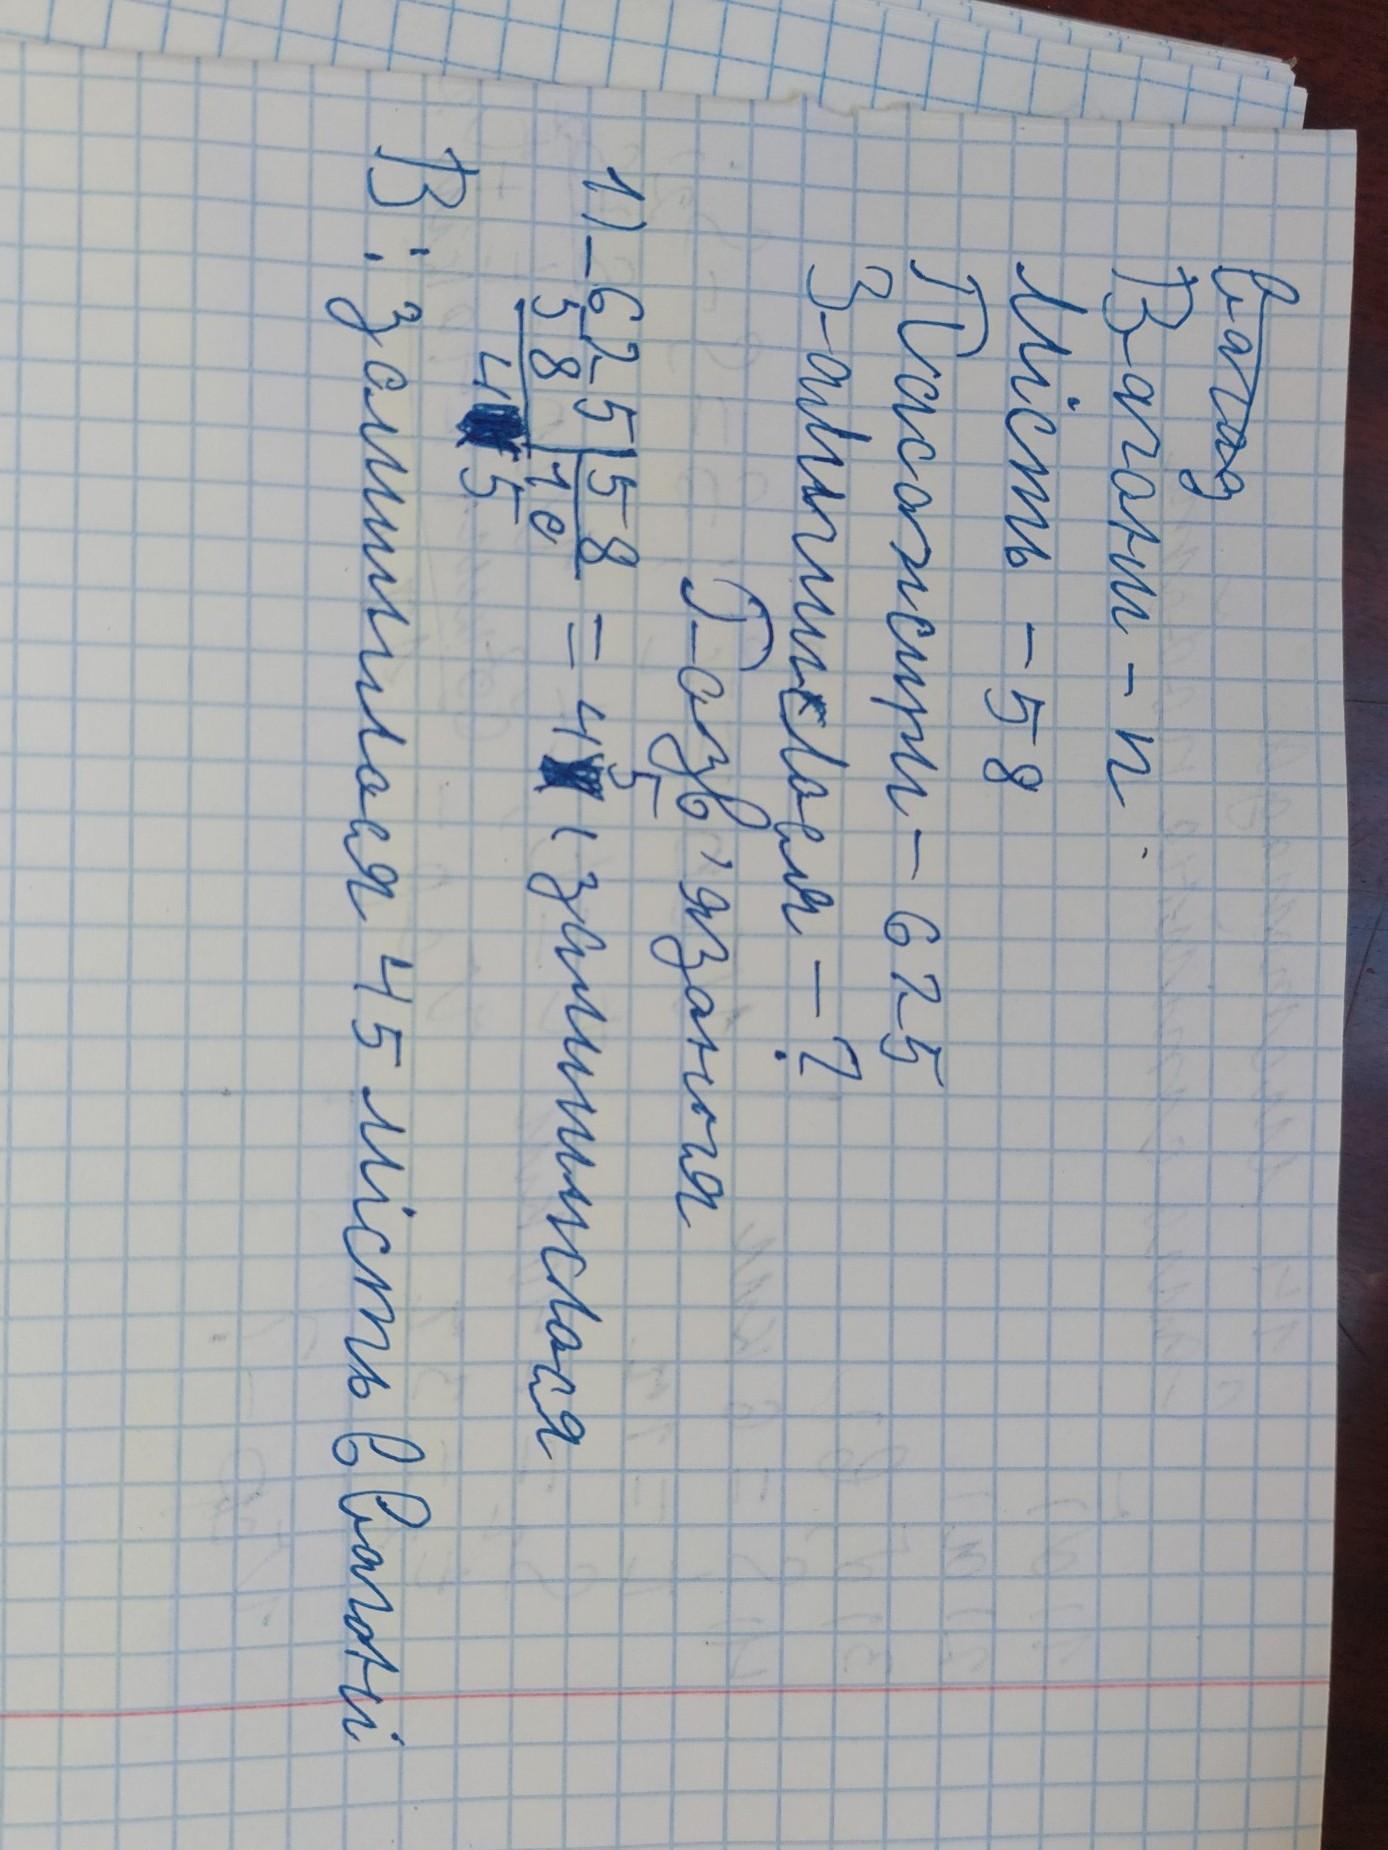 Вагад
Вагани - n
Мість - 58
Пасажири - 625
Залишилося - ?
Розв'язання
1) _625|58 = 45 (залишилося
58|10
45
В: Залишилося 45 мість в вагоні